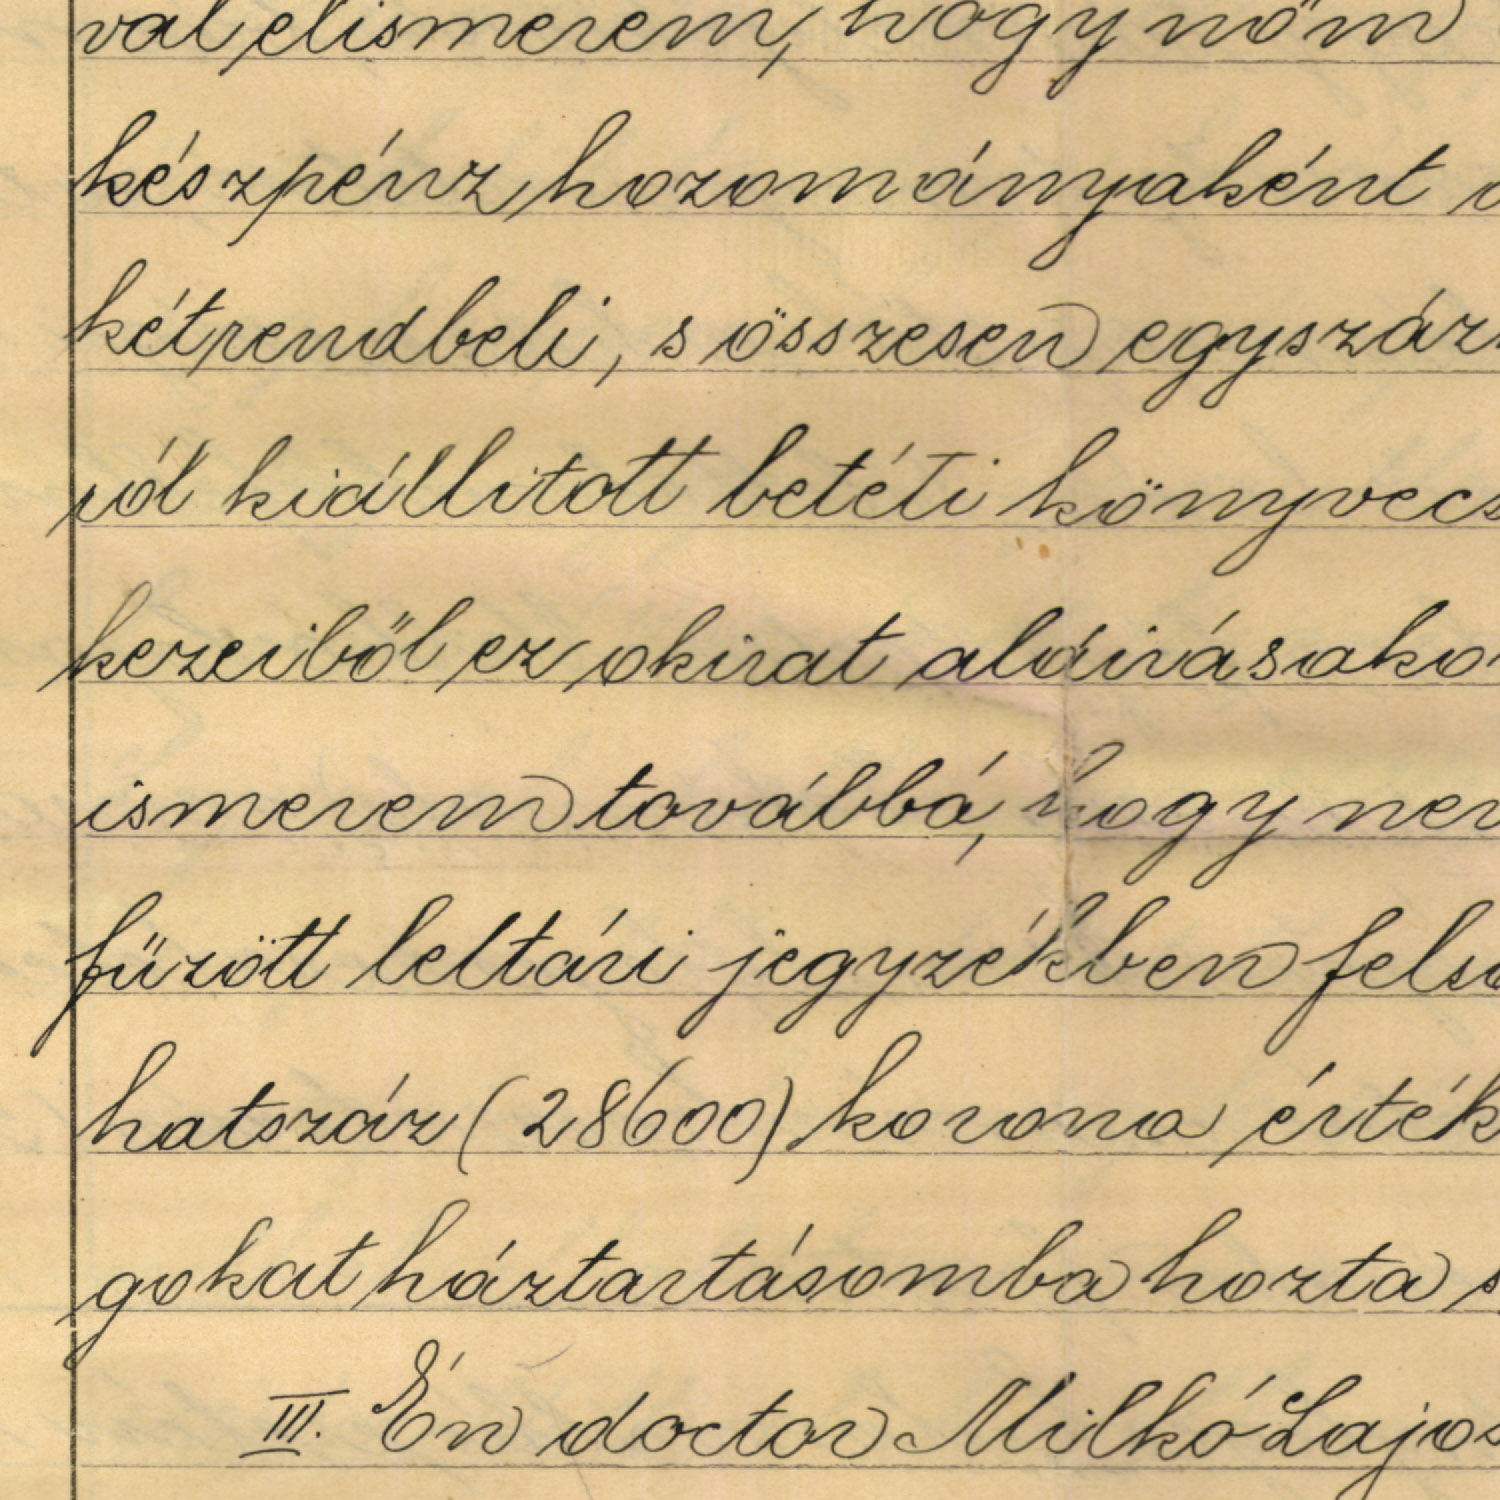 val elismerem, hogy nőm
készpénz hozományaként
kétrendbeli, s összesen egyszáz
ról kiállitott betéti könyvecs
kezeiből ez okirat aláirásako
ismerem továbbá, hogy nem
fűzött leltári jegyzékben felso
hatszáz (28600) korona érték
gokat háztartásomba hozta s
III. Én doctor Milkó Lajos